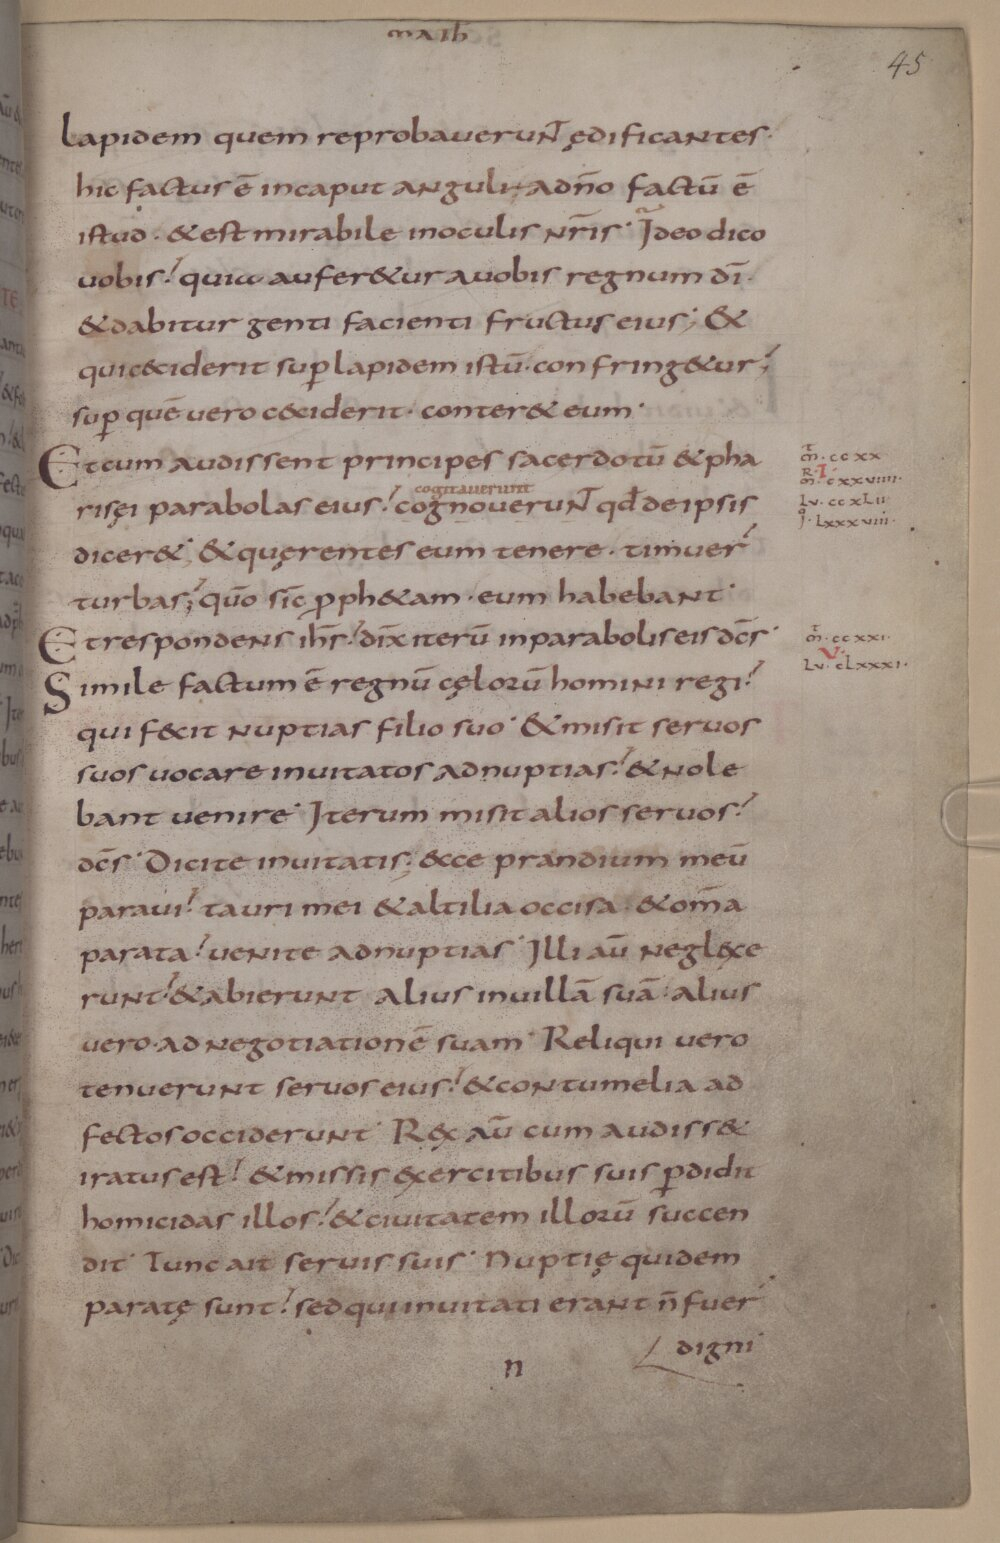 MATH
45
Lapidem quem reprobaverunt̄ ędificantes·
hic factus ē incaput anguli· adño factū ē
istud· & est mirabile inoculis nr̄is· Ideo dico
vobis· quia aufer&ur avobis regnum dī·
& dabitur genti facienti fructus eius; &
quic&ciderit sup lapidem istū· confring&ur;
sup quē vero c&ciderit· conter& eum·
Et cum audissent principes sacerdotū & pha
m̄·ccxx
R·I
m̄·cxxviiii·
cogitaverunt
risęi parabolas eius· cognoverunt̄ qd̄ de ipsis
Lv·ccxLii
dicer&· & quęrentes eum tenere· timuer̄
J·Lxxxviii·
turbas; quō sīc pph&am· eum habebant·
Et respondens ih̄s· dix̄ iterū inparabolis eis dc̄s·
m̄·ccxxi·
V·
Simile factum ē regnū cęlorū homini regi·
Lv·cLxxxi·
qui fecit nuptias filio suo· & misit servos
suos vocare invitatos adnuptias· & nole
bant venire· Iterum misit alios servos·
dc̄s· Dicite invitatis· ecce prandium meū
paravi· tauri mei & altilia occisa· & om̄a
parata· venite adnuptias· Illi aū neglexe
runt· & abierunt alius invillā suā· alius
vero· ad negotiationē suam· Reliqui vero
tenuerunt servos eius· & contumelia ad
fectos occiderunt· Rex aū cum audiss&
iratus est· & missis exercitibus suis pdidit
homicidas illos· & civitatem illorū succen
dit· Tunc ait servis suis· Nuptię quidem
paratę sunt· sed qui invitati erant n̄ fuer̄
digni·
n